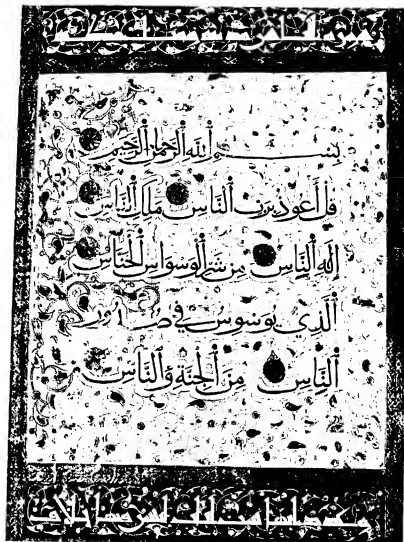 بِسْمِ ٱللَّهِ ٱلرَّحْمَٰنِ ٱلرَّحِيمِ
قُلْ أَعُوذُ بِرَبِّ ٱلنَّاسِ مَلِكِ ٱلنَّاسِ
إِلَٰهِ ٱلنَّاسِ مِن شَرِّ ٱلْوَسْوَاسِ ٱلْخَنَّاسِ
ٱلَّذِي يُوَسْوِسُ فِي صُدُورِ
ٱلنَّاسِ مِنَ ٱلْجِنَّةِ وَٱلنَّاسِ